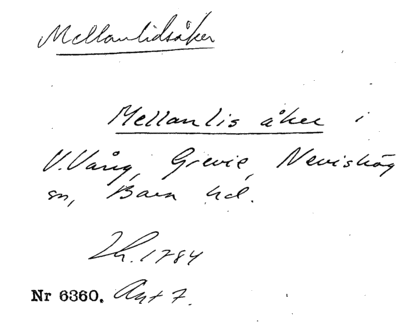 Mellanlidsåker
Mellanlis åker i
V. Vång, Grevie, Nevishög
sn, Bara hd.
Lh. 1784
Nr 6360. Akt 7.